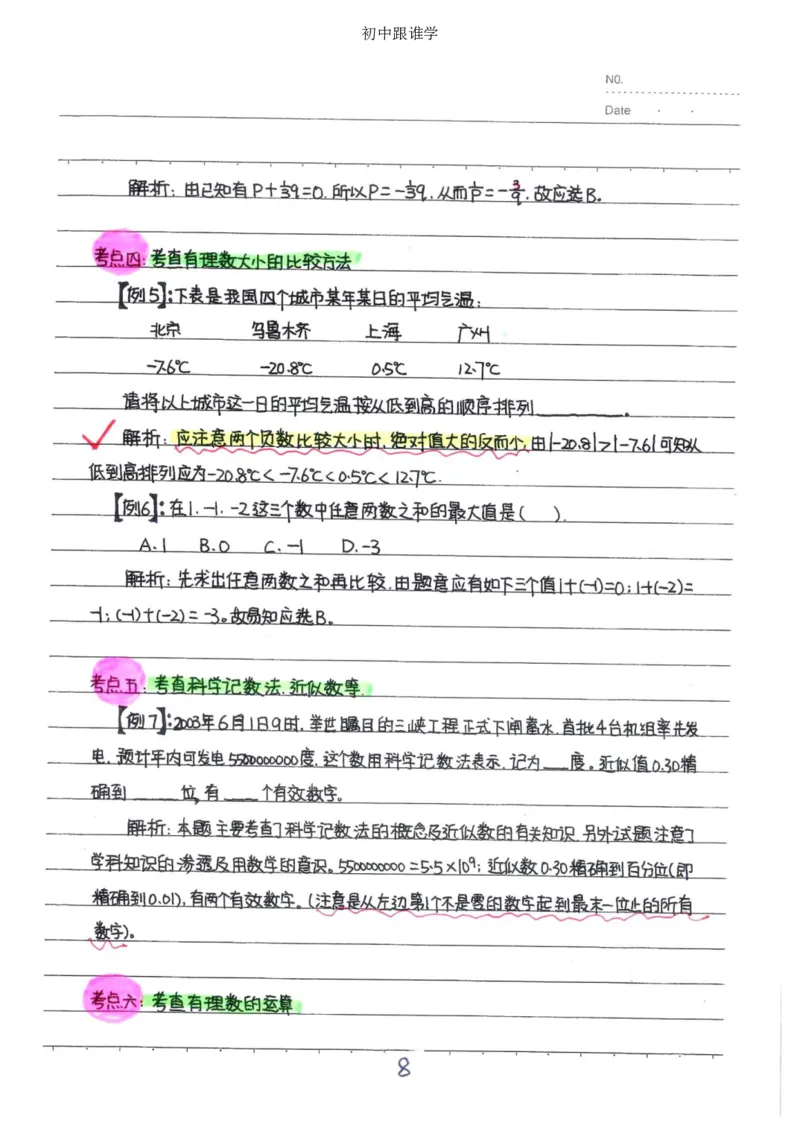 初中跟谁学
NO.
Date
解析：由已知有P+⅓q=0.所以P=-⅓q.从而
故应选B。
考点四：考查有理数大小的比较方法
【例5】：下表是我国四个城市某年某日的平均气温：
北京 乌鲁木齐 上海 广州
-7.6℃ -20.8℃ 0.5℃ 12.7℃
请将以上城市这一日的平均气温按从低到高的顺序排列________。
解析：应注意两个负数比较大小时,绝对值大的反而小,由|-20.8|>|-7.6|可知从
低到高排列应为-20.8℃<-7.6℃<0.5℃<12.7℃.
【例6】：在1.-1.-2这三个数中任意两数之和的最大值是( ).
A.1 B.0 C.-1 D.-3
解析：先求出任意两数之和再比较.由题意应有如下三个值1+(-1)=0;1+(-2)=
-1;(-1)+(-2)=-3。故易知应选B。
考点五：考查科学记数法.近似数等.
【例7】：2003年6月1日9时.举世瞩目的三峡工程正式下闸蓄水.首批4台机组率先发
电.预计年内可发电5500000000度.这个数用科学记数法表示.记为___度。近似值0.30精
确到_____位,有____个有效数字。
解析：本题主要考查了科学记数法的概念及近似数的有关知识.另外试题注意了
学科知识的渗透及用数学的意识。550000000=5.5×10⁹;近似数0.30精确到百分位(即
精确到0.01),有两个有效数字。(注意是从左边第1个不是零的数字起到最末一位止的所有
数字)。
考点六：考查有理数的运算
8